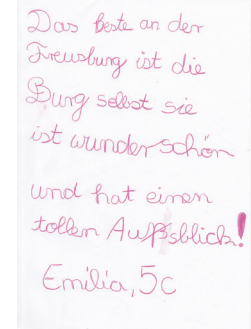 Das Beste an der
Freusburg ist die
Burg selbst sie
ist wunderschön
und hat einen
tollen Aufsblick!
Emilia, 5c